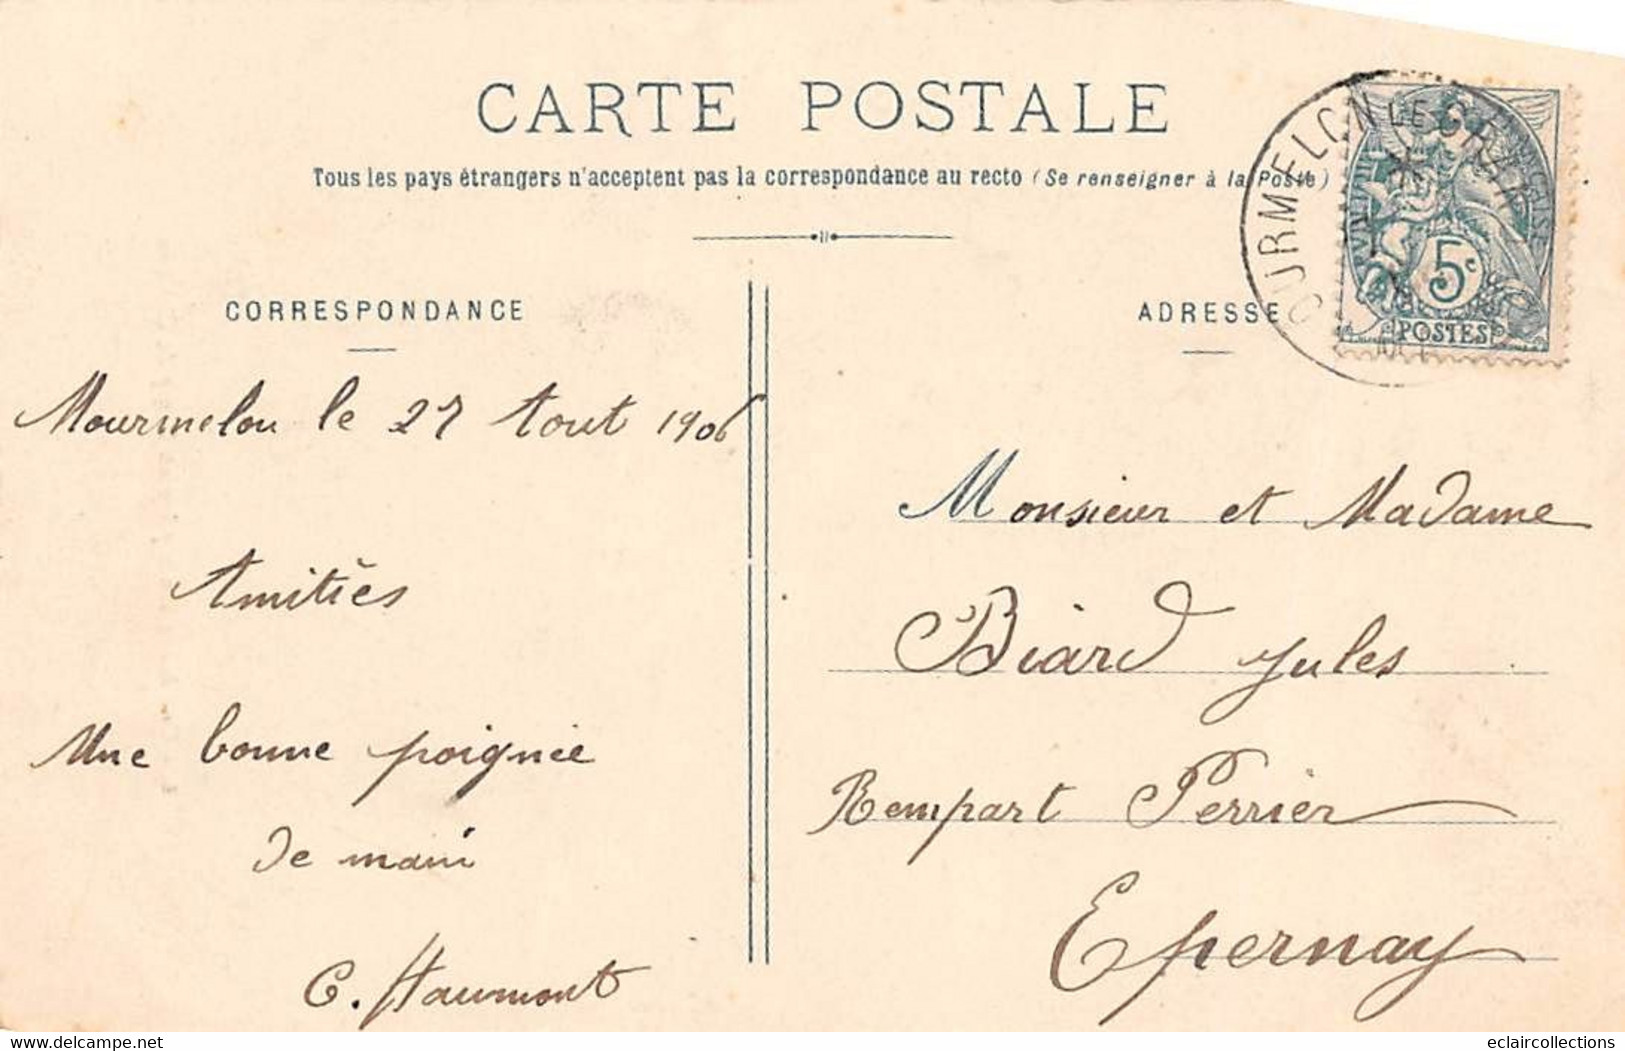 CARTE POSTALE
Tous les pays étrangers n'acceptent pas la correspondance au recto (Se renseigner à la Poste)
CORRESPONDANCE
ADRESSE
OURMELON LE GRAND
5c
POSTES
Mourmelon le 27 Aout 1906
Amitiés
Une bonne poignée
de main
C. Haumont
Monsieur et Madame
Biard Jules
Rempart Perrier
Epernay
delcampe.net
eclaircollections